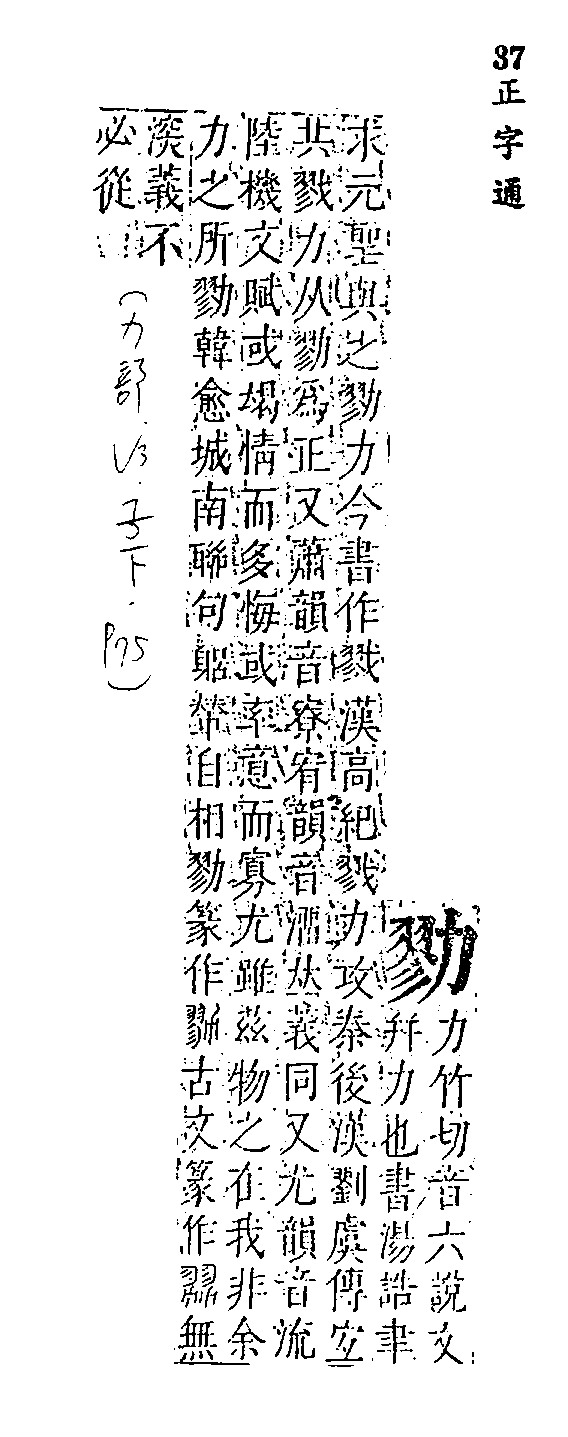 37 正字通
勠
力竹切音六說文
幷力也書湯誥聿
求元聖與之勠力今書作戮漢高紀戮力攻秦後漢劉虞傳宜
共戮力从勠爲正又蕭韻音寮宥韻音溜𠀤義同又尤韻音流
陸機文賦或竭情而多悔或率意而寡尤雖茲物之在我非余
力之所勠韓愈城南聯句躬自相勠篆作古文篆作無
深義不
必從
(力部.子下.P75)